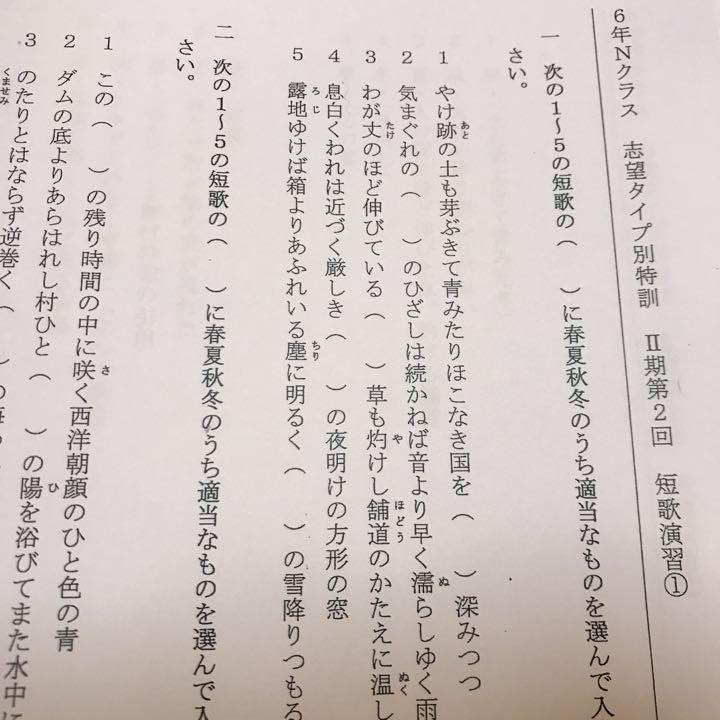 6年Nクラス 志望タイプ別特訓 Ⅱ期第2回 短歌演習①
一 次の1～5の短歌の（ ）に春夏秋冬のうち適当なものを選んで入
さい。
1 やけ跡の土も芽ぶきて青みたりほこなき国を（ ）深みつつ
2 気まぐれの（ ）のひざしは続かねば音より早く濡らしゆく雨
3 わが丈のほど伸びている（ ）草も灼けし舗道のかたえに温し
4 息白くわれは近づく厳しき（ ）の夜明けの方形の窓
5 露地ゆけば箱よりあふれいる塵に明るく（ ）の雪降りつもる
二 次の1～5の短歌の（ ）に春夏秋冬のうち適当なものを選んで入
さい。
1 この（ ）の残り時間の中に咲く西洋朝顔のひと色の青
2 ダムの底よりあらはれし村ひと（ ）の陽を浴びてまた水中に
3 のたりとはならず逆巻く（ ）の海
くませみ